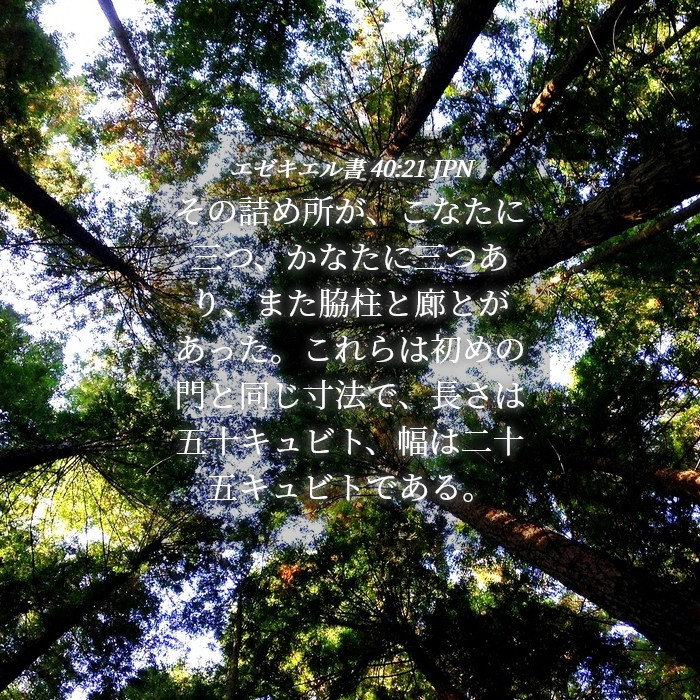 エゼキエル書 40:21 JPN
その詰め所が、こなたに
三つ、かなたに三つあ
り、また脇柱と廊とが
あった。これらは初めの
門と同じ寸法で、長さは
五十キュビト、幅は二十
五キュビトである。